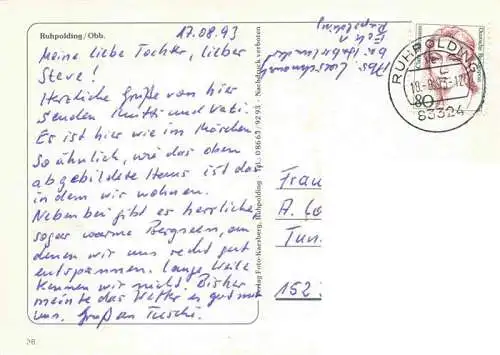 Ruhpolding/Obb.
17.08.93
Meine liebe Tochter, lieber
Steve!
Herzliche Grüße von hier
senden Mutti und Vati.
Es ist hier wie im Märchen
So ähnlich, wie das oben
abgebildete Haus ist das
in dem wir wohnen.
Nebenbei gibt es herrliche
sogar warme Bergseen, an
denen wir uns recht gut
entspannen. Lange Weile
kennen wir nicht. Bisher
meinte das Wetter es gut mit
uns. Gruß an
26
Verlag Foto-Karsberg, Ruhpolding - Tel. 08663/9293 - Nachdruck verboten
Abs.
Ruhpolding
RUHPOLDING
18.-8.93-12
83324
80
Deutsche Bundespost
Frau
A. Lo
Tun
152